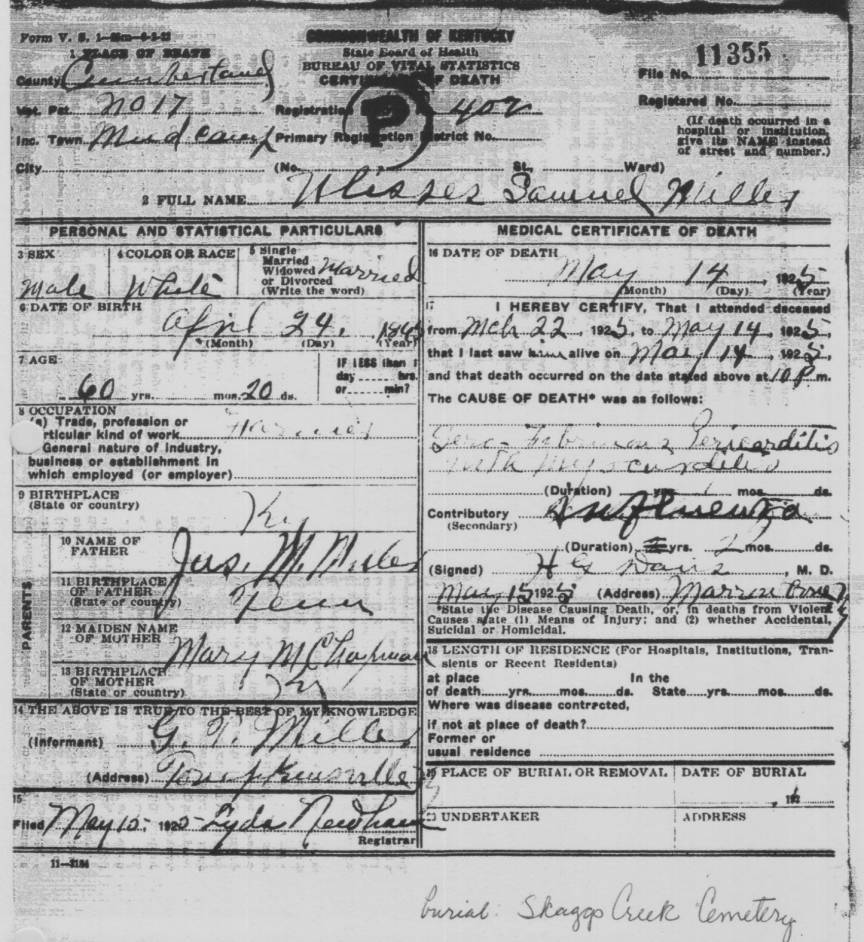 Form V. S. 1
COMMONWEALTH OF KENTUCKY
State Board of Health
BUREAU OF VITAL STATISTICS
CERTIFICATE OF DEATH
11355
File No.
1 PLACE OF DEATH
County Cumberland
Vot. Pct. No 17 Registration 402
Registered No.
(If death occurred in a
hospital or institution,
give its NAME instead
of street and number.)
P
Inc. Town Mud Camp Primary Registration District No.
City (No. St., Ward)
2 FULL NAME Ulisses Samuel Miller
PERSONAL AND STATISTICAL PARTICULARS
3 SEX Male
4 COLOR OR RACE White
5 Single
Married
Widowed
or Divorced
(Write the word) Married
6 DATE OF BIRTH
April 24, 1865
(Month) (Day) (Year)
7 AGE
60 yrs. mos. 20 ds.
IF LESS than 1
day hrs.
or min?
8 OCCUPATION
(a) Trade, profession or
particular kind of work Farmer
General nature of industry,
business or establishment in
which employed (or employer)
9 BIRTHPLACE
(State or country) Ky
PARENTS
10 NAME OF
FATHER Jas. M. Miller
11 BIRTHPLACE
OF FATHER
(State or country) Tenn
12 MAIDEN NAME
OF MOTHER Mary M Chapman
13 BIRTHPLACE
OF MOTHER
(State or country) Ky
14 THE ABOVE IS TRUE TO THE BEST OF MY KNOWLEDGE
(Informant) G. T. Miller
(Address) Tompkinsville
15
Filed May 15, 1925 Lyda Newham
Registrar
11-3184
MEDICAL CERTIFICATE OF DEATH
16 DATE OF DEATH
May 14, 1925
(Month) (Day) (Year)
17 I HEREBY CERTIFY, That I attended deceased
from Mch 22, 1925, to May 14, 1925,
that I last saw him alive on May 14, 1925,
and that death occurred on the date stated above at 10 P.m.
The CAUSE OF DEATH* was as follows:
Sero-Fibrinous Pericarditis
with Myocarditis
(Duration) yrs. mos. ds.
Contributory Influenza
(Secondary)
(Duration) yrs. 2 mos. ds.
(Signed) H G Davis, M. D.
May 15 1925 (Address) Marrow Bone Ky
*State the Disease Causing Death, or, in deaths from Violent
Causes state (1) Means of Injury; and (2) whether Accidental,
Suicidal or Homicidal.
18 LENGTH OF RESIDENCE (For Hospitals, Institutions, Tran-
sients or Recent Residents)
at place In the
of death yrs. mos. ds. State yrs. mos. ds.
Where was disease contracted,
if not at place of death?
Former or
usual residence
19 PLACE OF BURIAL OR REMOVAL DATE OF BURIAL
, 192
20 UNDERTAKER ADDRESS
burial: Skaggs Creek Cemetery